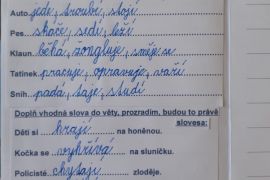 Auto jede, troubí, stojí
Pes skáče, sedí, leží
Klaun běhá, žongluje, směje se
Tatínek pracuje, opravuje, vaří
Sníh padá, taje, studí
Doplň vhodná slova do věty, prozradím, budou to právě
slovesa:
Děti si hrají na honěnou.
Kočka se vyhřívá na sluníčku.
Policisté chytají zloděje.